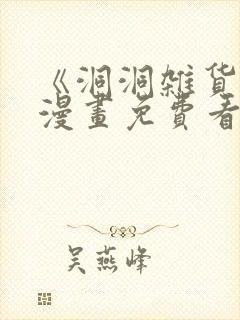 《洞洞雜货
漫畫免費看
吴燕峰